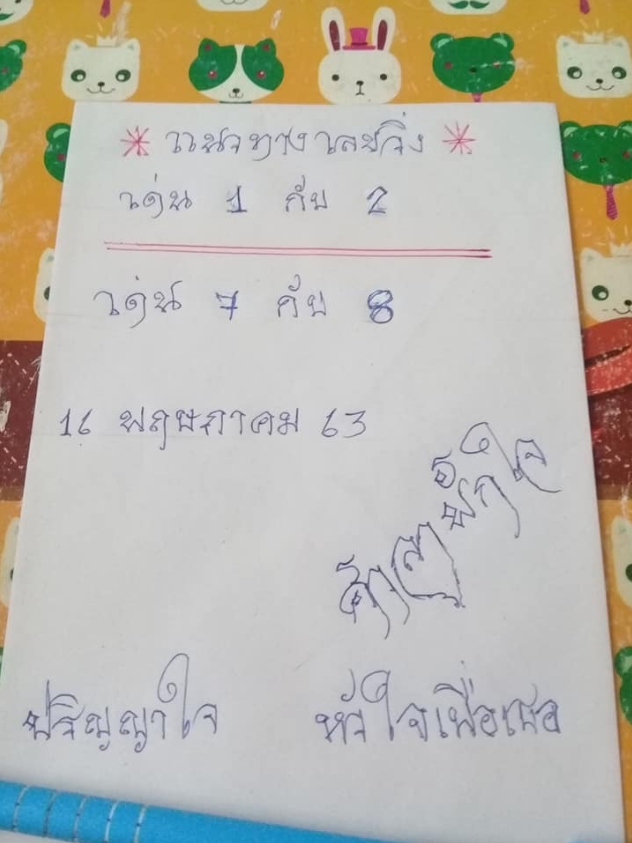 * แนวทางเลขวิ่ง *
เด่น 1 กับ 2
เด่น 7 กับ 8
16 พฤษภาคม 63
ปริญญาใจ
หัวใจเพื่อเธอ